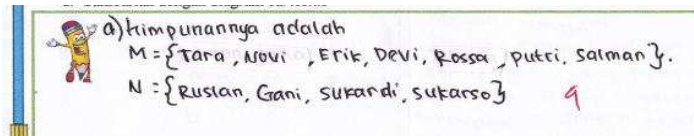 a) Himpunannya adalah
M = {Tara, Novi , Erik, Devi, Rossa, putri, salman}.
N = {Ruslan, Gani, sukardi, sukarso} 9